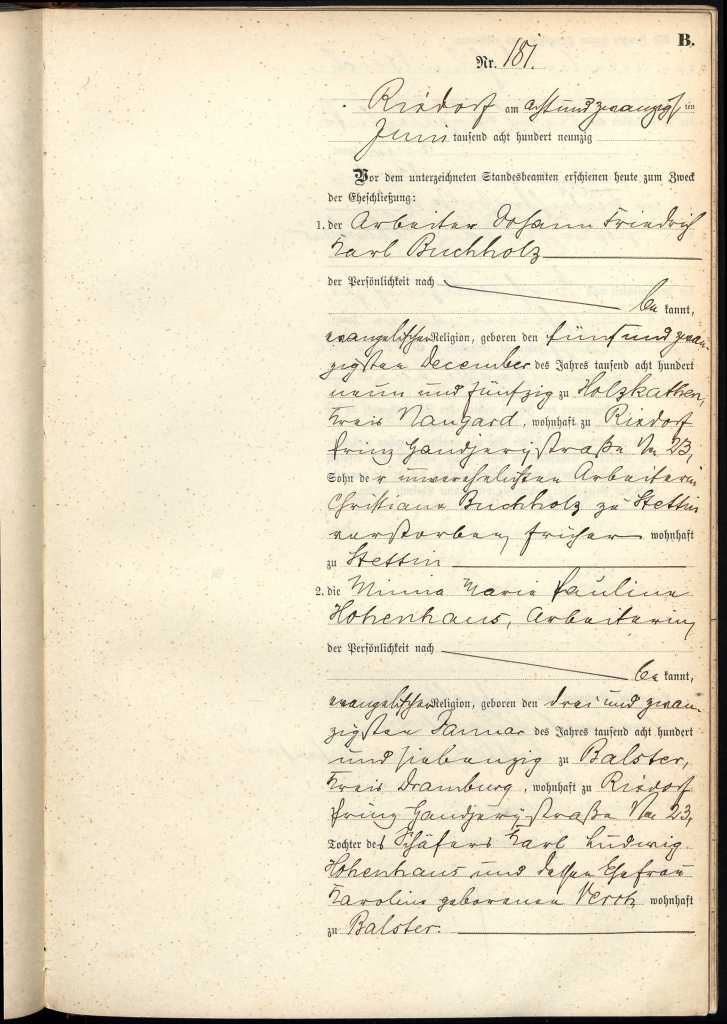 B.
Nr. 181.
Rixdorf am acht und zwanzigsten
Juni tausend acht hundert neunzig
Vor dem unterzeichneten Standesbeamten erschienen heute zum Zweck
der Eheschließung:
1. der Arbeiter Johann Friedrich
Karl Buchholz
der Persönlichkeit nach
be kannt,
evangelischer Religion, geboren den fünf und zwan-
zigsten December des Jahres tausend acht hundert
neun und fünfzig zu Holzkathen,
Kreis Naugard, wohnhaft zu Rixdorf
Prinz Handjerystraße No 23,
Sohn der unverehelichten Arbeiterin
Christiane Buchholz zu Stettin
verstorben, früher wohnhaft
zu Stettin
2. die Minna Marie Pauline
Hohenhaus, Arbeiterin,
der Persönlichkeit nach
be kannt,
evangelischer Religion, geboren den drei und zwan-
zigsten Januar des Jahres tausend acht hundert
und siebenzig zu Balster,
Kreis Dramburg, wohnhaft zu Rixdorf
Prinz Handjerystraße No 23,
Tochter des Schäfers Karl Ludwig
Hohenhaus und dessen Ehefrau
Karoline geborenen wohnhaft
zu Balster.